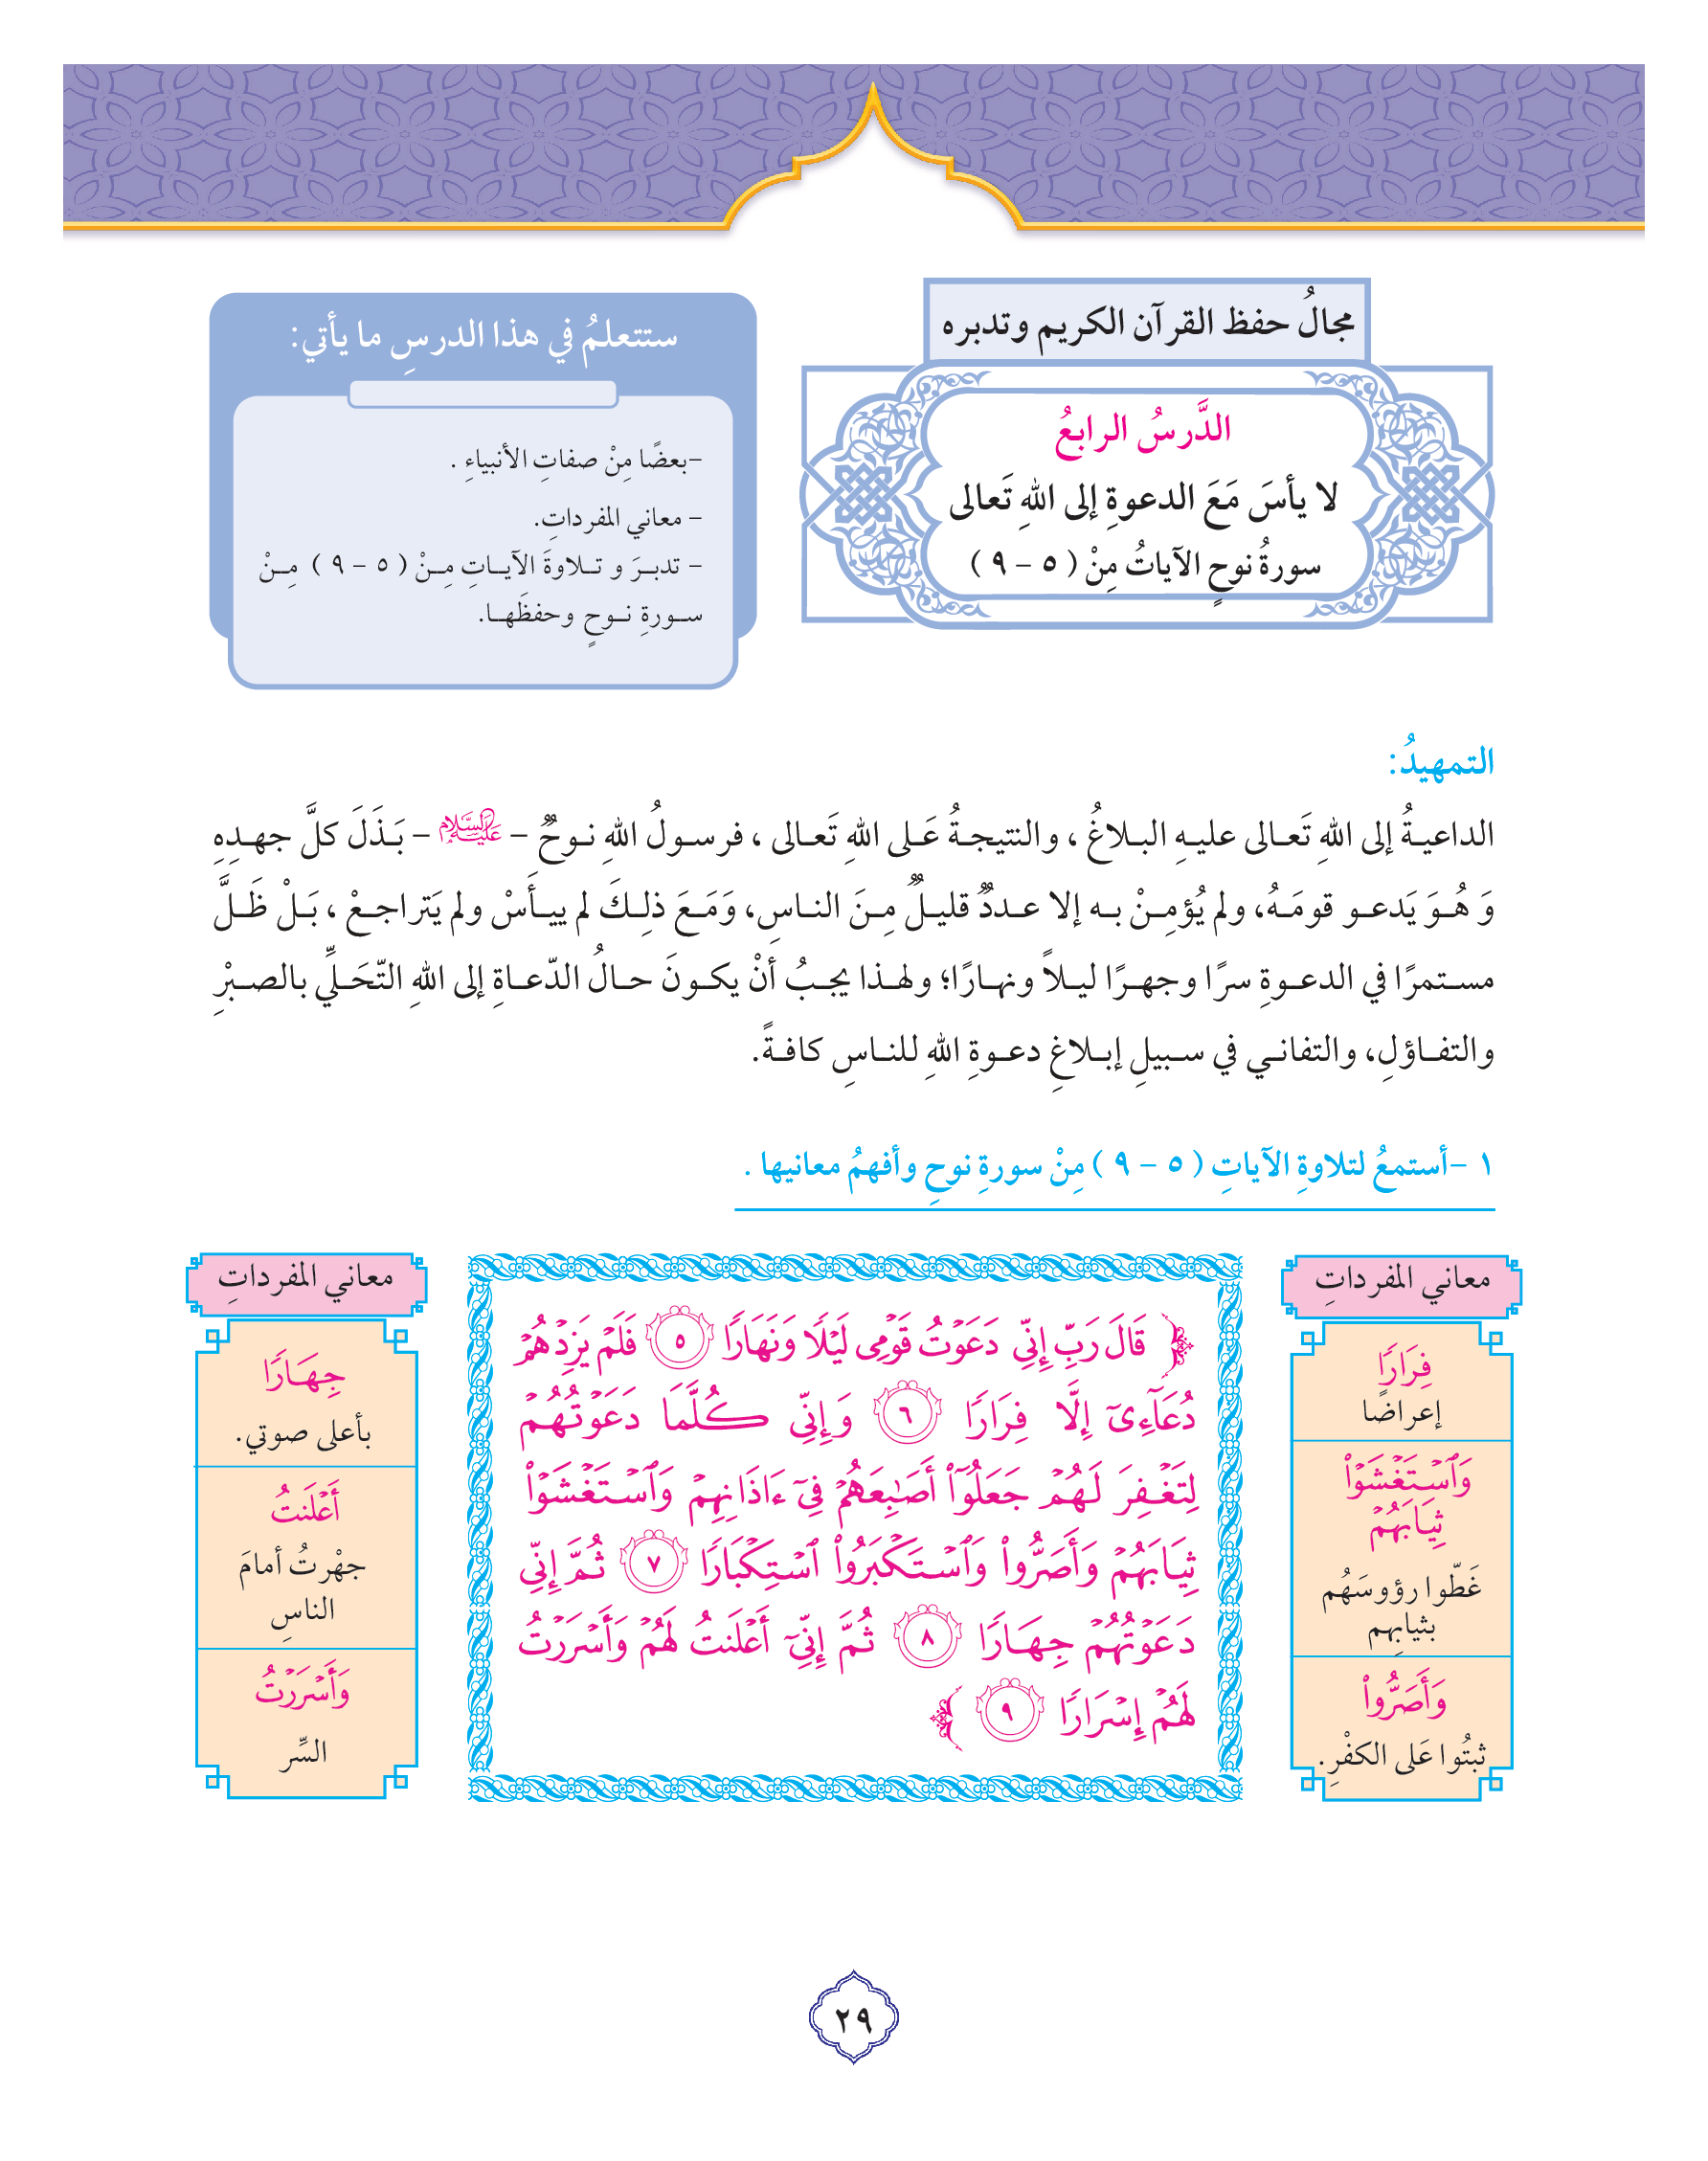 مجالُ حفظ القرآن الكريم وتدبره
الدَّرسُ الرابعُ
لا يأسَ مَعَ الدعوةِ إلى اللهِ تَعالى
سورةُ نوحٍ الآياتُ مِنْ ( ٥ – ٩ )
ستتعلمُ في هذا الدرسِ ما يأتي:
-بعضًا مِنْ صفاتِ الأنبياءِ .
- معاني المفرداتِ.
- تدبرَ و تلاوةَ الآياتِ مِنْ ( ٥ – ٩ ) مِنْ
سورةِ نوحٍ وحفظَها.
التمهيدُ:
الداعيةُ إلى اللهِ تَعالى عليهِ البلاغُ ، والنتيجةُ عَلى اللهِ تَعالى ، فرسولُ اللهِ نوحٌ – عَلَيْهِ السَّلَام – بَذَلَ كلَّ جهدِهِ
وَ هُوَ يَدعو قومَهُ، ولم يُؤمِنْ به إلا عددٌ قليلٌ مِنَ الناسِ، وَمَعَ ذلِكَ لم ييأَسْ ولم يَتراجعْ ، بَلْ ظَلَّ
مستمرًا في الدعوةِ سرًا وجهرًا ليلاً ونهارًا؛ ولهذا يجبُ أنْ يكونَ حالُ الدّعاةِ إلى اللهِ التّحَلِّي بالصبْرِ
والتفاؤلِ، والتفاني في سبيلِ إبلاغِ دعوةِ اللهِ للناسِ كافةً.
١ -أستمعُ لتلاوةِ الآياتِ ( ٥ – ٩ ) مِنْ سورةِ نوحٍ وأفهمُ معانيها .
معاني المفرداتِ
فِرَارًا
إعراضًا
وَٱسۡتَغۡشَوۡاْ
ثِيَابَهُمۡ
غَطّوا رؤوسَهُم
بثيابِهم
وَأَصَرُّواْ
ثبتُوا عَلى الكفْرِ.
﴿ قَالَ رَبِّ إِنِّي دَعَوۡتُ قَوۡمِي لَيۡلًا وَنَهَارًا ٥ فَلَمۡ يَزِدۡهُمۡ
دُعَآءِيٓ إِلَّا فِرَارًا ٦ وَإِنِّي كُلَّمَا دَعَوۡتُهُمۡ
لِتَغۡفِرَ لَهُمۡ جَعَلُوٓاْ أَصَٰبِعَهُمۡ فِيٓ ءَاذَانِهِمۡ وَٱسۡتَغۡشَوۡاْ
ثِيَابَهُمۡ وَأَصَرُّواْ وَٱسۡتَكۡبَرُواْ ٱسۡتِكۡبَارًا ٧ ثُمَّ إِنِّي
دَعَوۡتُهُمۡ جِهَارًا ٨ ثُمَّ إِنِّيٓ أَعۡلَنتُ لَهُمۡ وَأَسۡرَرۡتُ
لَهُمۡ إِسۡرَارًا ٩ ﴾
معاني المفرداتِ
جِهَارًا
بأعلى صوتي.
أَعۡلَنتُ
جهْرتُ أمامَ
الناسِ
وَأَسۡرَرۡتُ
السِّر
٢٩